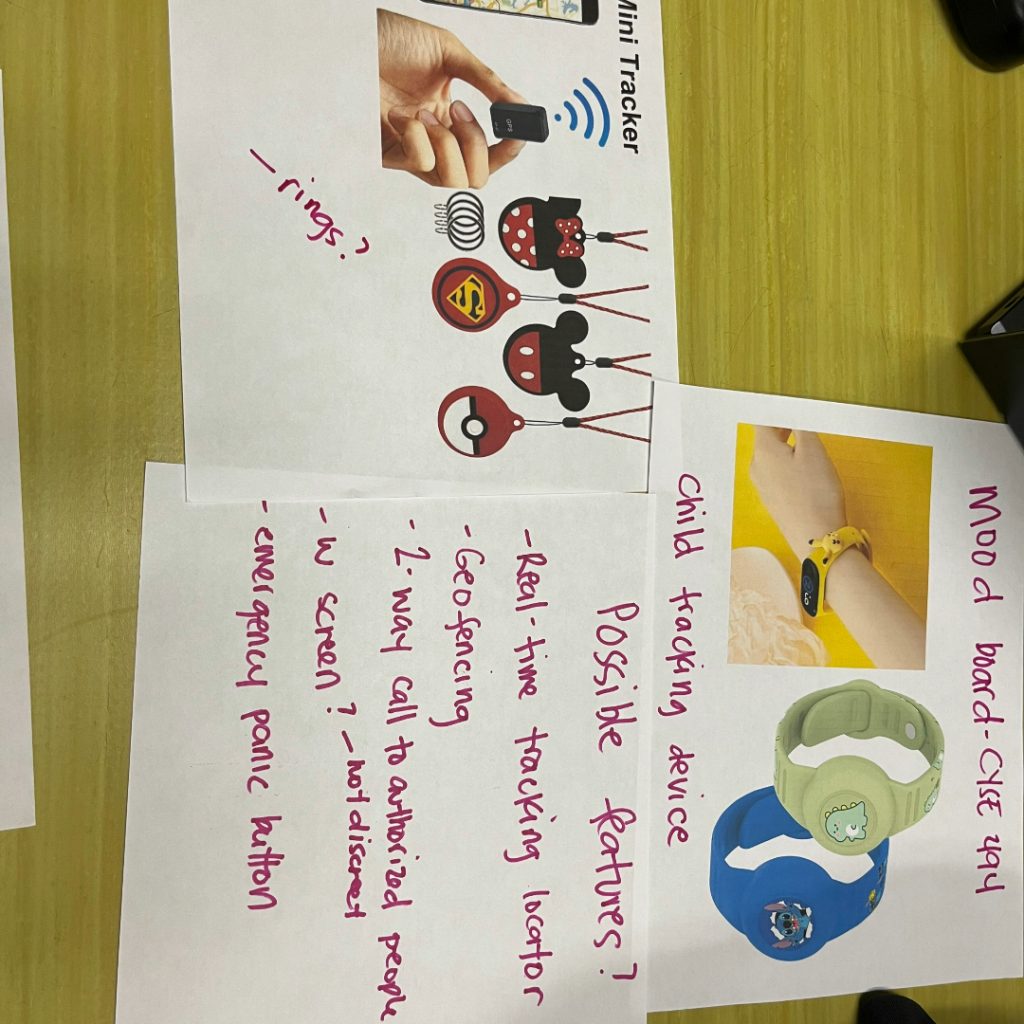 Mood board - CYSE 494
Child tracking device
Possible features?
- Real-time tracking locator
- Geofencing
- 2-way call to authorized people
- w screen? - not discreet
- emergency panic button
Mini Tracker
GPS
S
- rings?